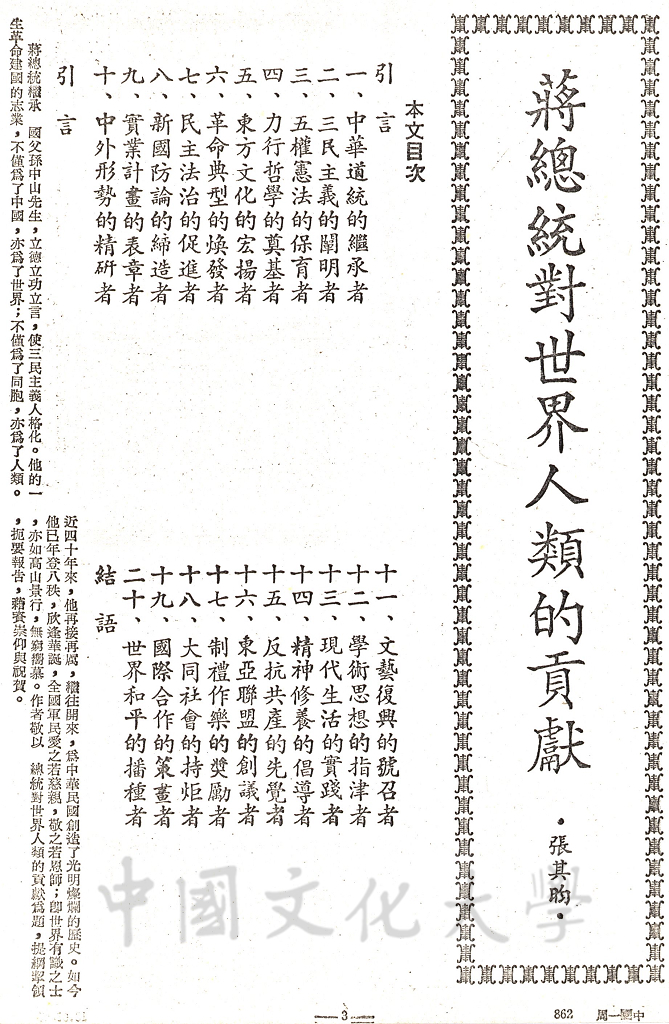 蔣總統對世界人類的貢獻
•張其昀•
本文目次
引言
一、中華道統的繼承者
二、三民主義的闡明者
三、五權憲法的保育者
四、力行哲學的奠基者
五、東方文化的宏揚者
六、革命典型的煥發者
七、民主法治的促進者
八、新國防論的締造者
九、實業計畫的表章者
十、中外形勢的精研者
十一、文藝復興的號召者
十二、學術思想的指津者
十三、現代生活的實踐者
十四、精神修養的倡導者
十五、反抗共產的先覺者
十六、東亞聯盟的創議者
十七、制禮作樂的獎勵者
十八、大同社會的持炬者
十九、國際合作的策畫者
二十、世界和平的播種者
結語
引言
蔣總統繼承 國父孫中山先生,立德立功立言,使三民主義人格化。他的一
生革命建國的志業,不僅為了中國,亦為了世界;不僅為了同胞,亦為了人類。
近四十年來,他再接再厲,繼往開來,為中華民國創造了光明燦爛的歷史。如今
他已年登八秩,欣逢華誕,全國軍民愛之若慈親,敬之若恩師;卽世界有識之士
,亦如高山景行,無窮嚮慕。作者敬以 總統對世界人類的貢獻為題,提綱挈領
,扼要報告,藉資崇仰與祝賀。
中國文化大學
—3—
862 周一國中